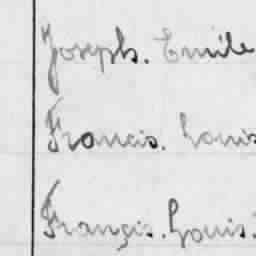 Joseph. Emile
Francis. Louis
François. Louis.